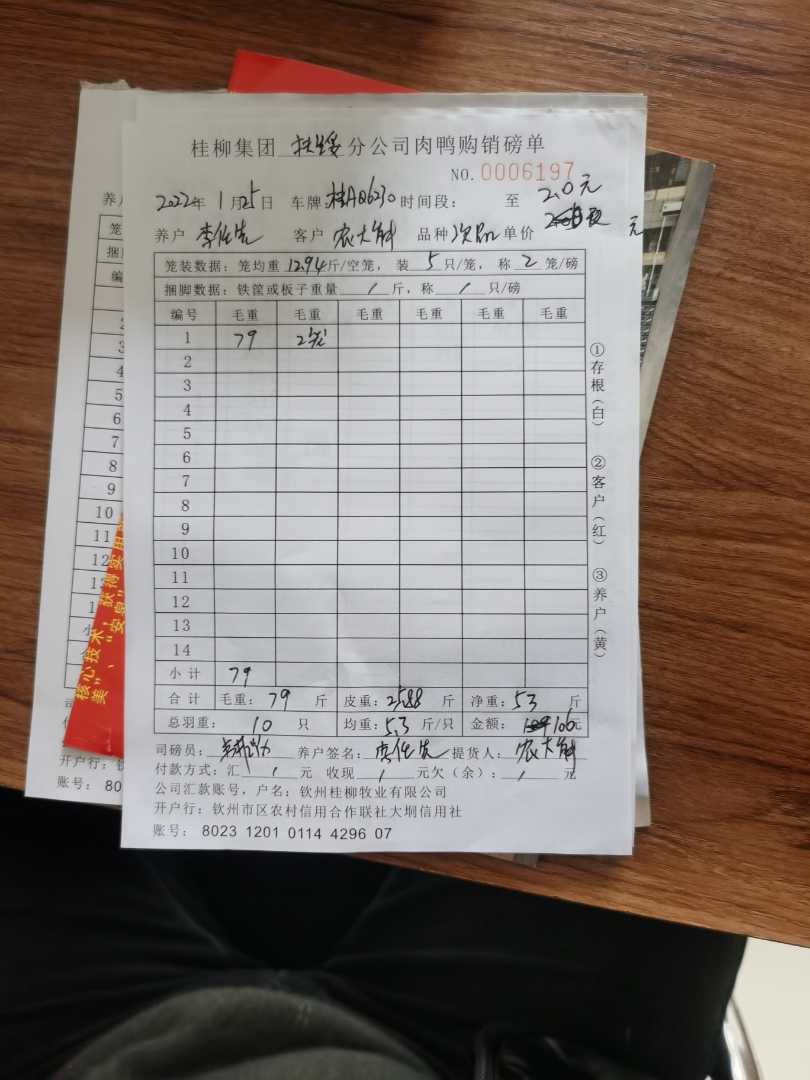 桂柳集团 扶绥 分公司肉鸭购销磅单
NO. 0006197
2022年 1月25日 车牌:桂AQ6230 时间段: 至
2.0元
养户 李仕先 客户 农大斛 品种 次品 单价 元
笼装数据:笼均重 12.94 斤/空笼,装 5 只/笼,称 2 笼/磅
捆脚数据:铁筐或板子重量 / 斤,称 / 只/磅
编号 毛重 毛重 毛重 毛重 毛重 毛重
1 79 2笼
2
3
4
5
6
7
8
9
10
11
12
13
14
小计 79
合计 毛重: 79 斤 皮重: 25.88 斤 净重: 53 斤
总羽重: 10 只 均重: 5.3 斤/只 金额: 106 元
司磅员: 养户签名: 李仕先 提货人: 农大斛
付款方式:汇 / 元 收现 / 元欠(余): / 元
公司汇款账号,户名:钦州桂柳牧业有限公司
开户行:钦州市区农村信用合作联社大垌信用社
账号: 8023 1201 0114 4296 07
①存根(白) ②客户(红) ③养户(黄)
养户
编号
3
4
5
6
7
8
9
10
11
12
开户行:钦
账号: 80
核心技术,获得实用
美”、“安息